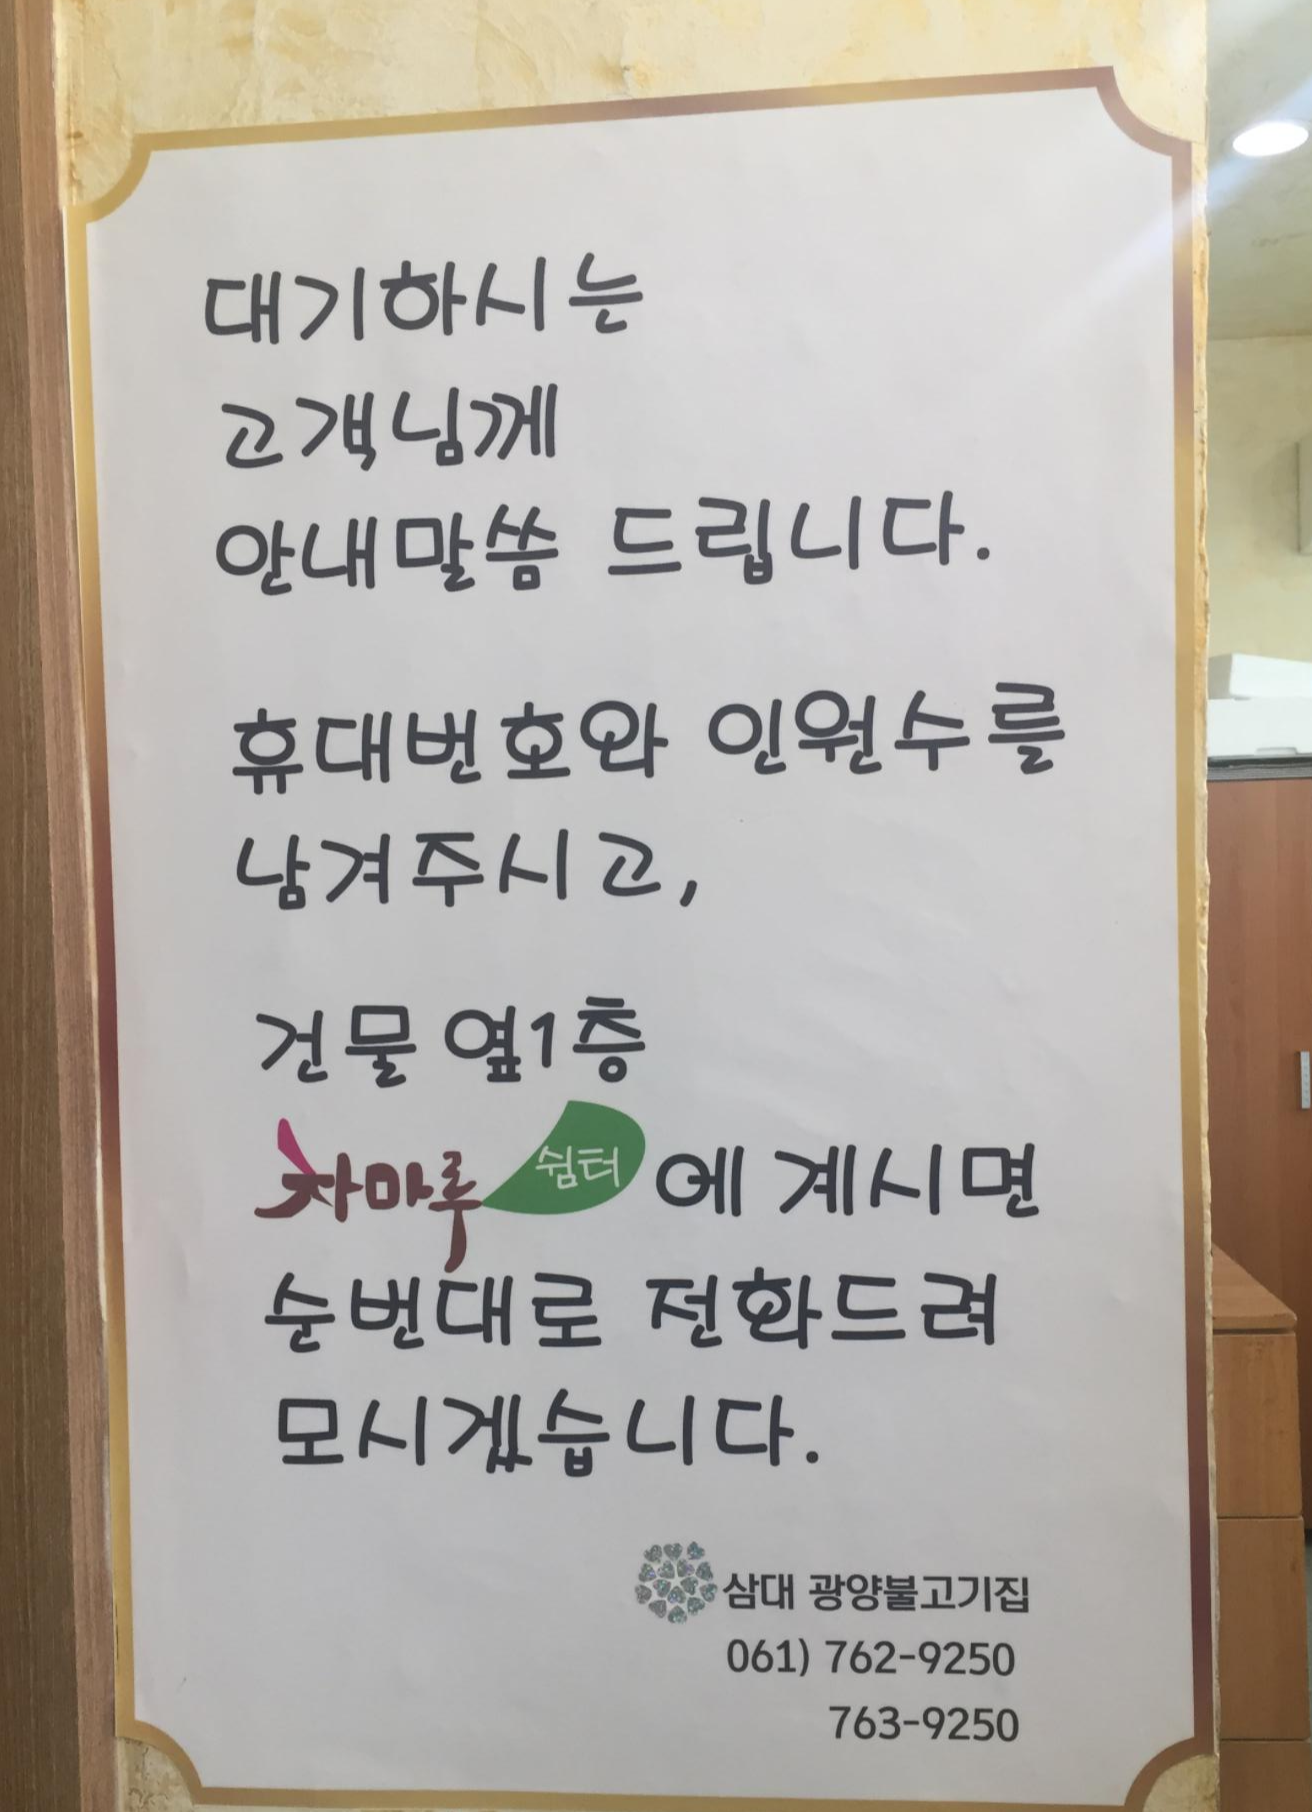 대기하시는
고객님께
안내말씀 드립니다.
휴대번호와 인원수를
남겨주시고,
건물 옆1층
차마루 쉼터 에 계시면
순번대로 전화드려
모시겠습니다.
삼대 광양불고기집
061) 762-9250
763-9250